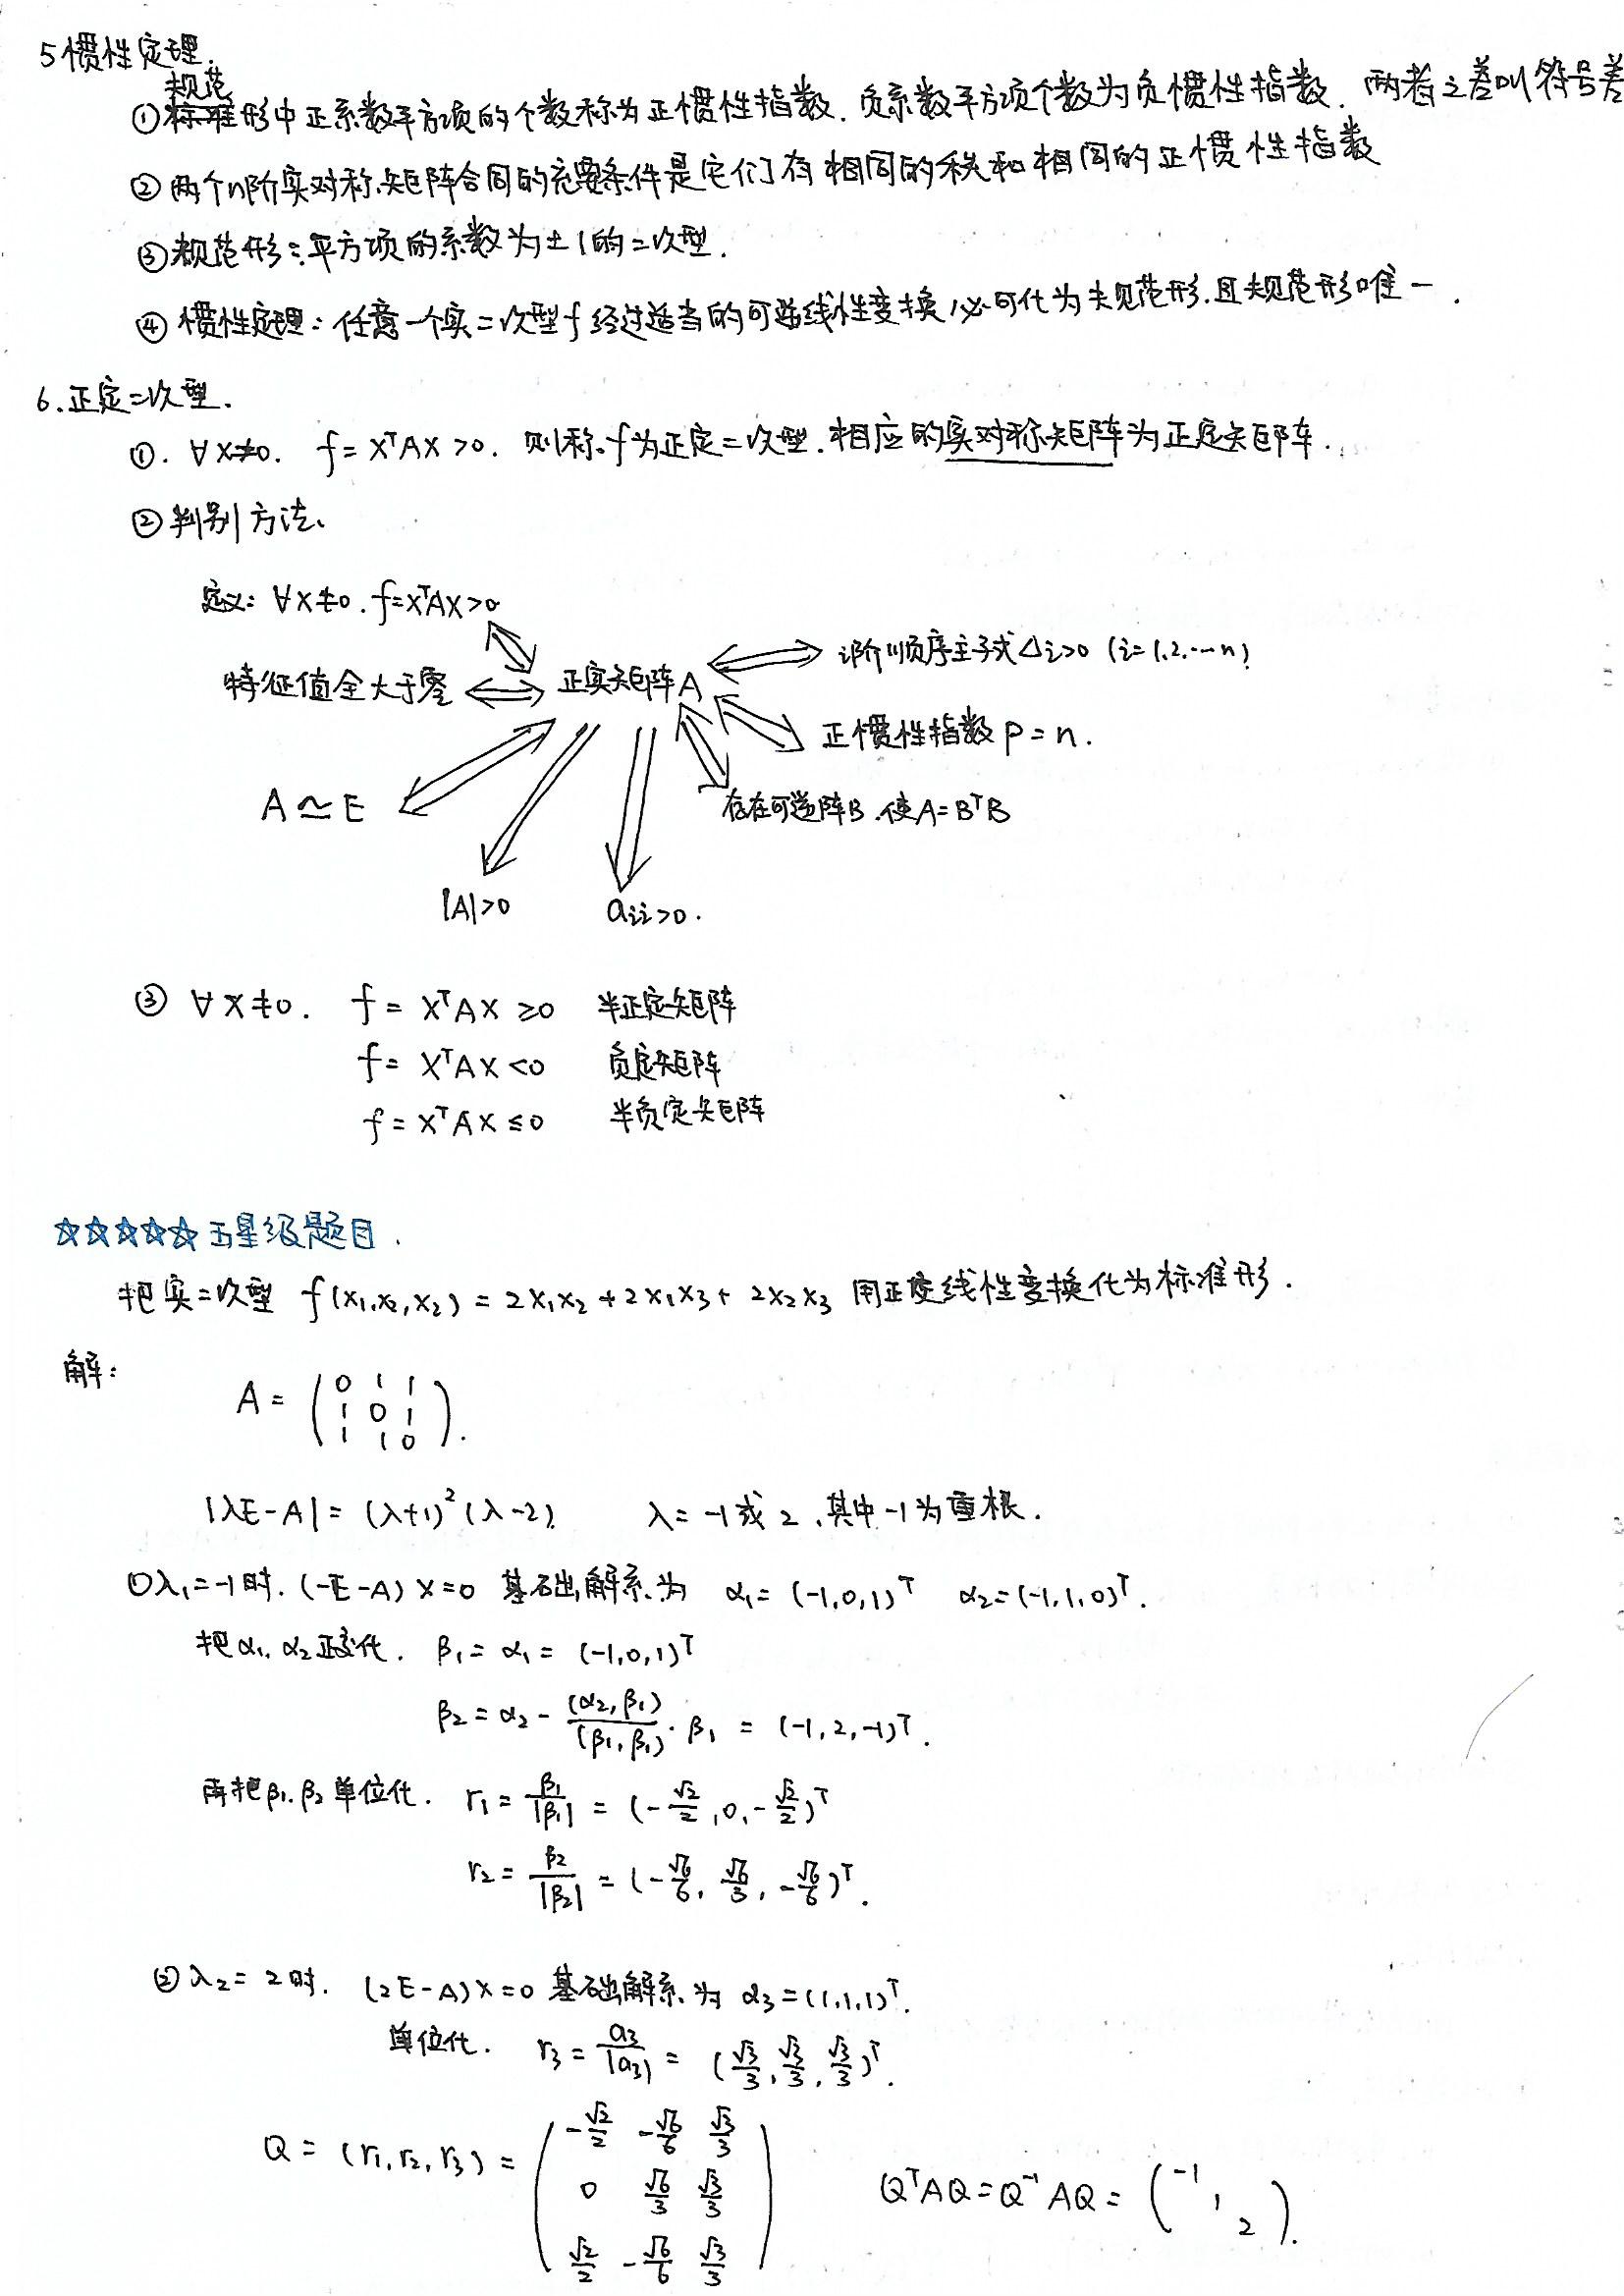 5 惯性定理.
规范
①标准形中正系数平方项的个数称为正惯性指数. 负系数平方项个数为负惯性指数. 两者之差叫符号差
②两个n阶实对称矩阵合同的充要条件是它们有相同的秩和相同的正惯性指数
③规范形:平方项的系数为±1的二次型.
④惯性定理:任意一个实二次型f经过适当的可逆线性变换必可化为规范形.且规范形唯一.
6.正定二次型.
①. ∀X≠0. f=XᵀAX>0. 则称f为正定二次型.相应的实对称矩阵为正定矩阵.
②判别方法.
定义: ∀X≠0. f=XᵀAX>0
i阶顺序主子式Δi>0 (i=1.2.…n)
特征值全大于零 ⇔ 正实矩阵A
正惯性指数 P=n.
A≃E
存在可逆阵B.使A=BᵀB
|A|>0 aii>0.
③ ∀X≠0. f=XᵀAX≥0 半正定矩阵
f=XᵀAX<0 负定矩阵
f=XᵀAX≤0 半负定矩阵
☆☆☆☆☆五星级题目.
把实二次型 f(x₁,x₂,x₂)=2x₁x₂+2x₁x₃+2x₂x₃ 用正交线性变换化为标准形.
解:
A=(0 1 1
1 0 1
1 1 0).
|λE-A|=(λ+1)²(λ-2). λ=-1或2.其中-1为重根.
①λ₁=-1时.(-E-A)X=0 基础解系为 α₁=(-1,0,1)ᵀ α₂=(-1,1,0)ᵀ.
把α₁,α₂正交化. β₁=α₁=(-1,0,1)ᵀ
β₂=α₂-(α₂,β₁)/(β₁,β₁)·β₁=(-1,2,-1)ᵀ.
再把β₁.β₂单位化. r₁=β₁/|β₁|=(-√2/2,0,-√2/2)ᵀ
r₂=β₂/|β₂|=(-√6/6,√6/3,-√6/6)ᵀ.
②λ₂=2时. (2E-A)X=0 基础解系为 α₃=(1,1,1)ᵀ.
单位化. r₃=α₃/|α₃|=(√3/3,√3/3,√3/3)ᵀ.
Q=(r₁,r₂,r₃)=(-√2/2 -√6/6 √3/3
0 √6/3 √3/3
√2/2 -√6/6 √3/3)
QᵀAQ=Q⁻¹AQ=(-1 1 2).